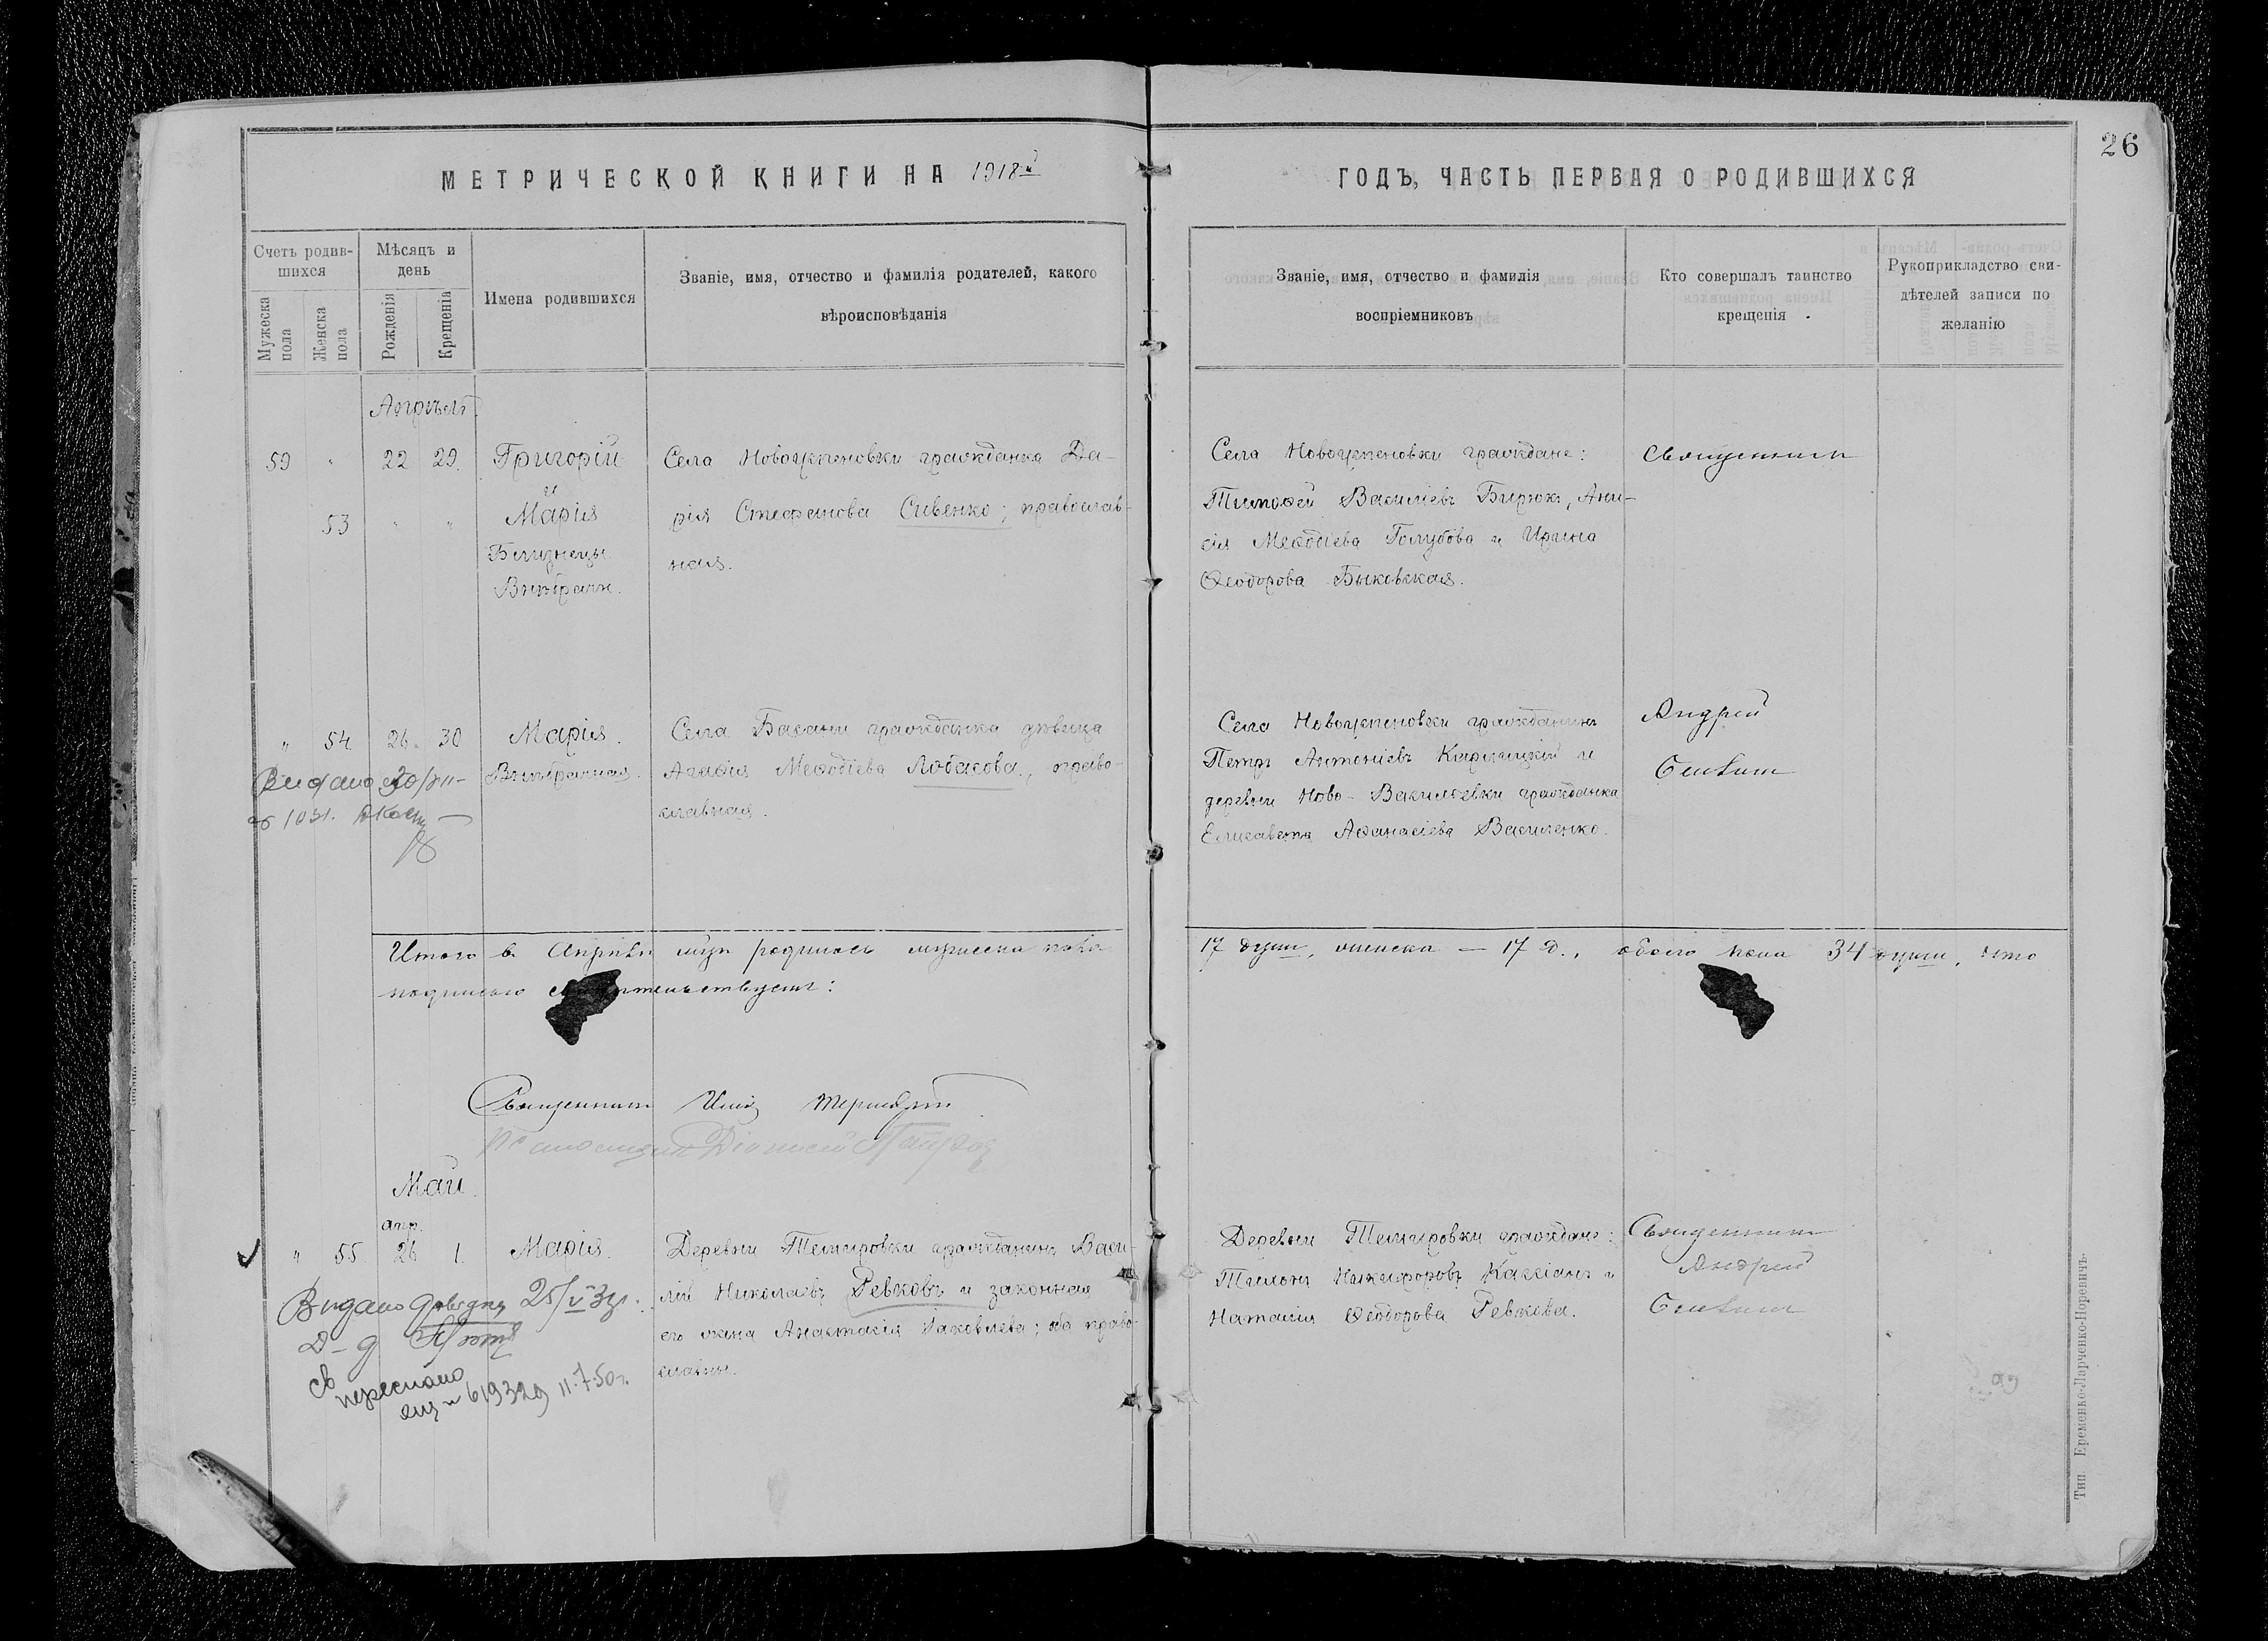 МЕТРИЧЕСКОЙ КНИГИ НА 1918й
ГОДЪ, ЧАСТЬ ПЕРВАЯ О РОДИВШИХСЯ
26
Счетъ родив-
шихся
Мужеска
пола
Женска
пола
Мѣсяцъ и
день
Рожденія
Крещенія
Имена родившихся
Званіе, имя, отчество и фамилія родителей, какого
вѣроисповѣданія
Званіе, имя, отчество и фамилія
воспріемниковъ
Кто совершалъ таинство
крещенія
Рукоприкладство сви-
дѣтелей записи по
желанію
Апрѣль.
59 " 22 29. Григорій
и
53 " " Марія
Близнецы
Внѣбрачн.
Села Новоуспеновки гражданка Да-
рія Стефанова Сивенко; православ-
ная.
Села Новоуспеновки граждане:
Тимофей Василіевъ Бирюкъ, Ани-
сія Меѳодіева Голубова и Ирина
Ѳеодорова Быковская.
Священникъ
" 54 26. 30 Марія.
Внѣбрачная.
Села Басани гражданка дѣвица
Агафія Меѳодіева Лобасова, право-
славная.
Села Новоуспеновки гражданинъ
Петръ Антоніевъ и
деревни Ново-Васильевки гражданка
Елисавета Аѳанасіева Василенко.
Андрей
Видано
Итого въ Апрѣлѣ мцѣ родилось мужеска пола
17 душъ, женска — 17 д., обоего пола 34 души, что
подписью
Священникъ
Діонисій
Май.
апр.
" 55. 26 1. Марія.
Деревни Темировки гражданинъ Васи-
лій Николаевъ Ревковъ и законная
его жена Анастасія Іаковлева; оба право-
славны.
Деревни Темировки граждане:
Никифоровъ Кассіанъ и
Наталія Ѳеодорова Ревкова.
Священникъ
Андрей
Видано 25/VI
переслано
619329 11.7.50г.
Тип. Еременко-Ларченко-Норевичъ